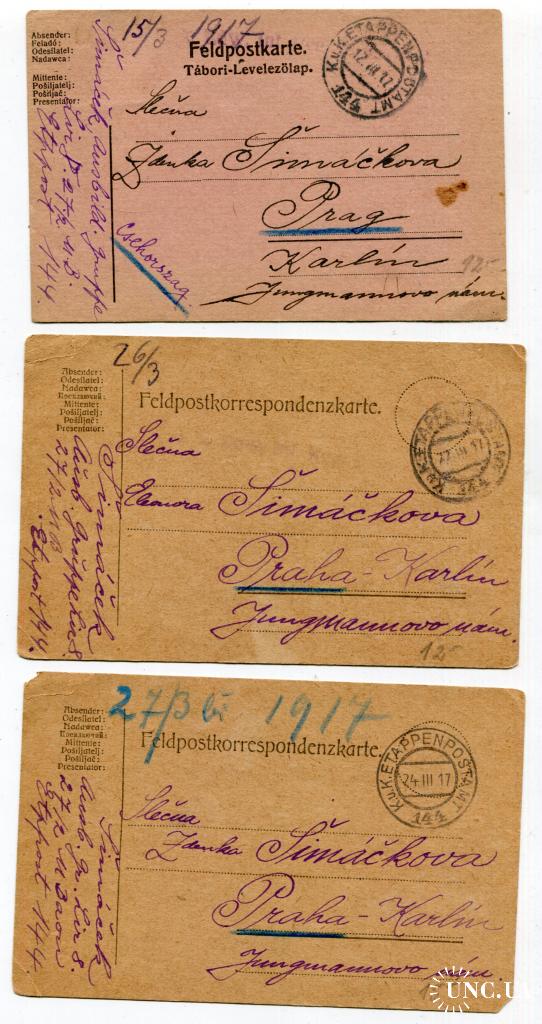 15/3 1917
Absender:
Feladó:
Odesílatel:
Nadawca:
Mittente:
Pošiljatelj:
Pošiljač:
Presentator:
Feldpostkarte.
Tábori-Levelezőlap.
K.u.K. ETAPPENPOSTAMT
12 III 17
144
Šimáček, Ausbild. Gruppe
27/2
Etappost 144.
Slečna
Zdenka Šimáčkova
Prag
Csehország
Karlín
125
Jungmannovo nám.
26/3
Absender:
Odesílatel:
Nadawca:
Mittente:
Pošiljatelj:
Pošiljač:
Presentator:
Feldpostkorrespondenzkarte.
K.u.K. ETAPPENPOSTAMT
22 III 17
144
Šimáček
Ausb. Gruppe
27/2
Etappost 144.
Slečna
Eleonora Šimáčkova
Praha-Karlín
Jungmannovo nám.
125
27/3 1917
Absender:
Odesílatel:
Nadawca:
Mittente:
Pošiljatelj:
Pošiljač:
Presentator:
Feldpostkorrespondenzkarte.
K.u.K. ETAPPENPOSTAMT
24 III 17
144
Šimáček
Ausb. Gr.
27/2 Baon
Etappost 144
Slečna
Zdenka Šimáčkova
Praha-Karlín
Jungmannovo nám.
UNC.UA